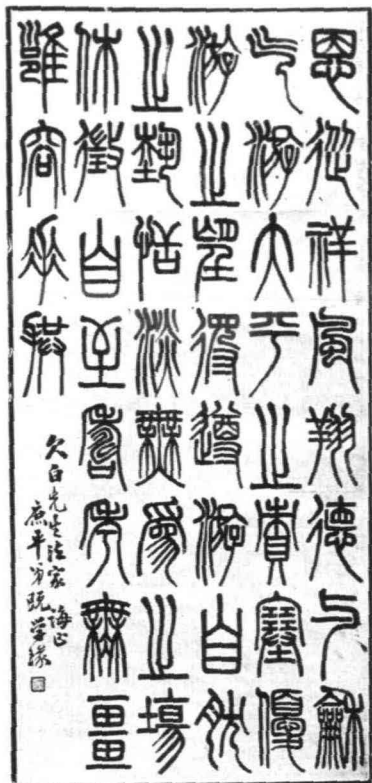 恩從祥風翔德与龢
气游大平之責塞優
游之望得遵游自然
之埶恬淡無為之場
休徵自至壽考無疆
雝容垂拱
久白先生法家誨正
平弟